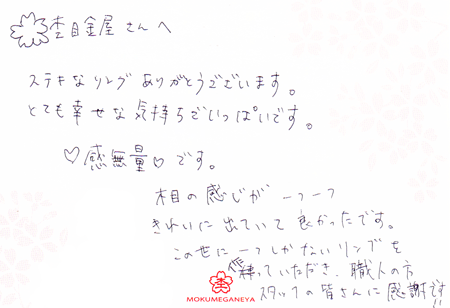 杢目金屋さんへ
ステキなリングありがとうございます。
とても幸せな気持ちでいっぱいです。
♡感無量♡です。
木目の感じが一つ一つ
きれいに出ていて良かったです。
この世に一つしかないリングを
作っていただき、職人の方
スタッフの皆さんに感謝です!!
MOKUMEGANEYA